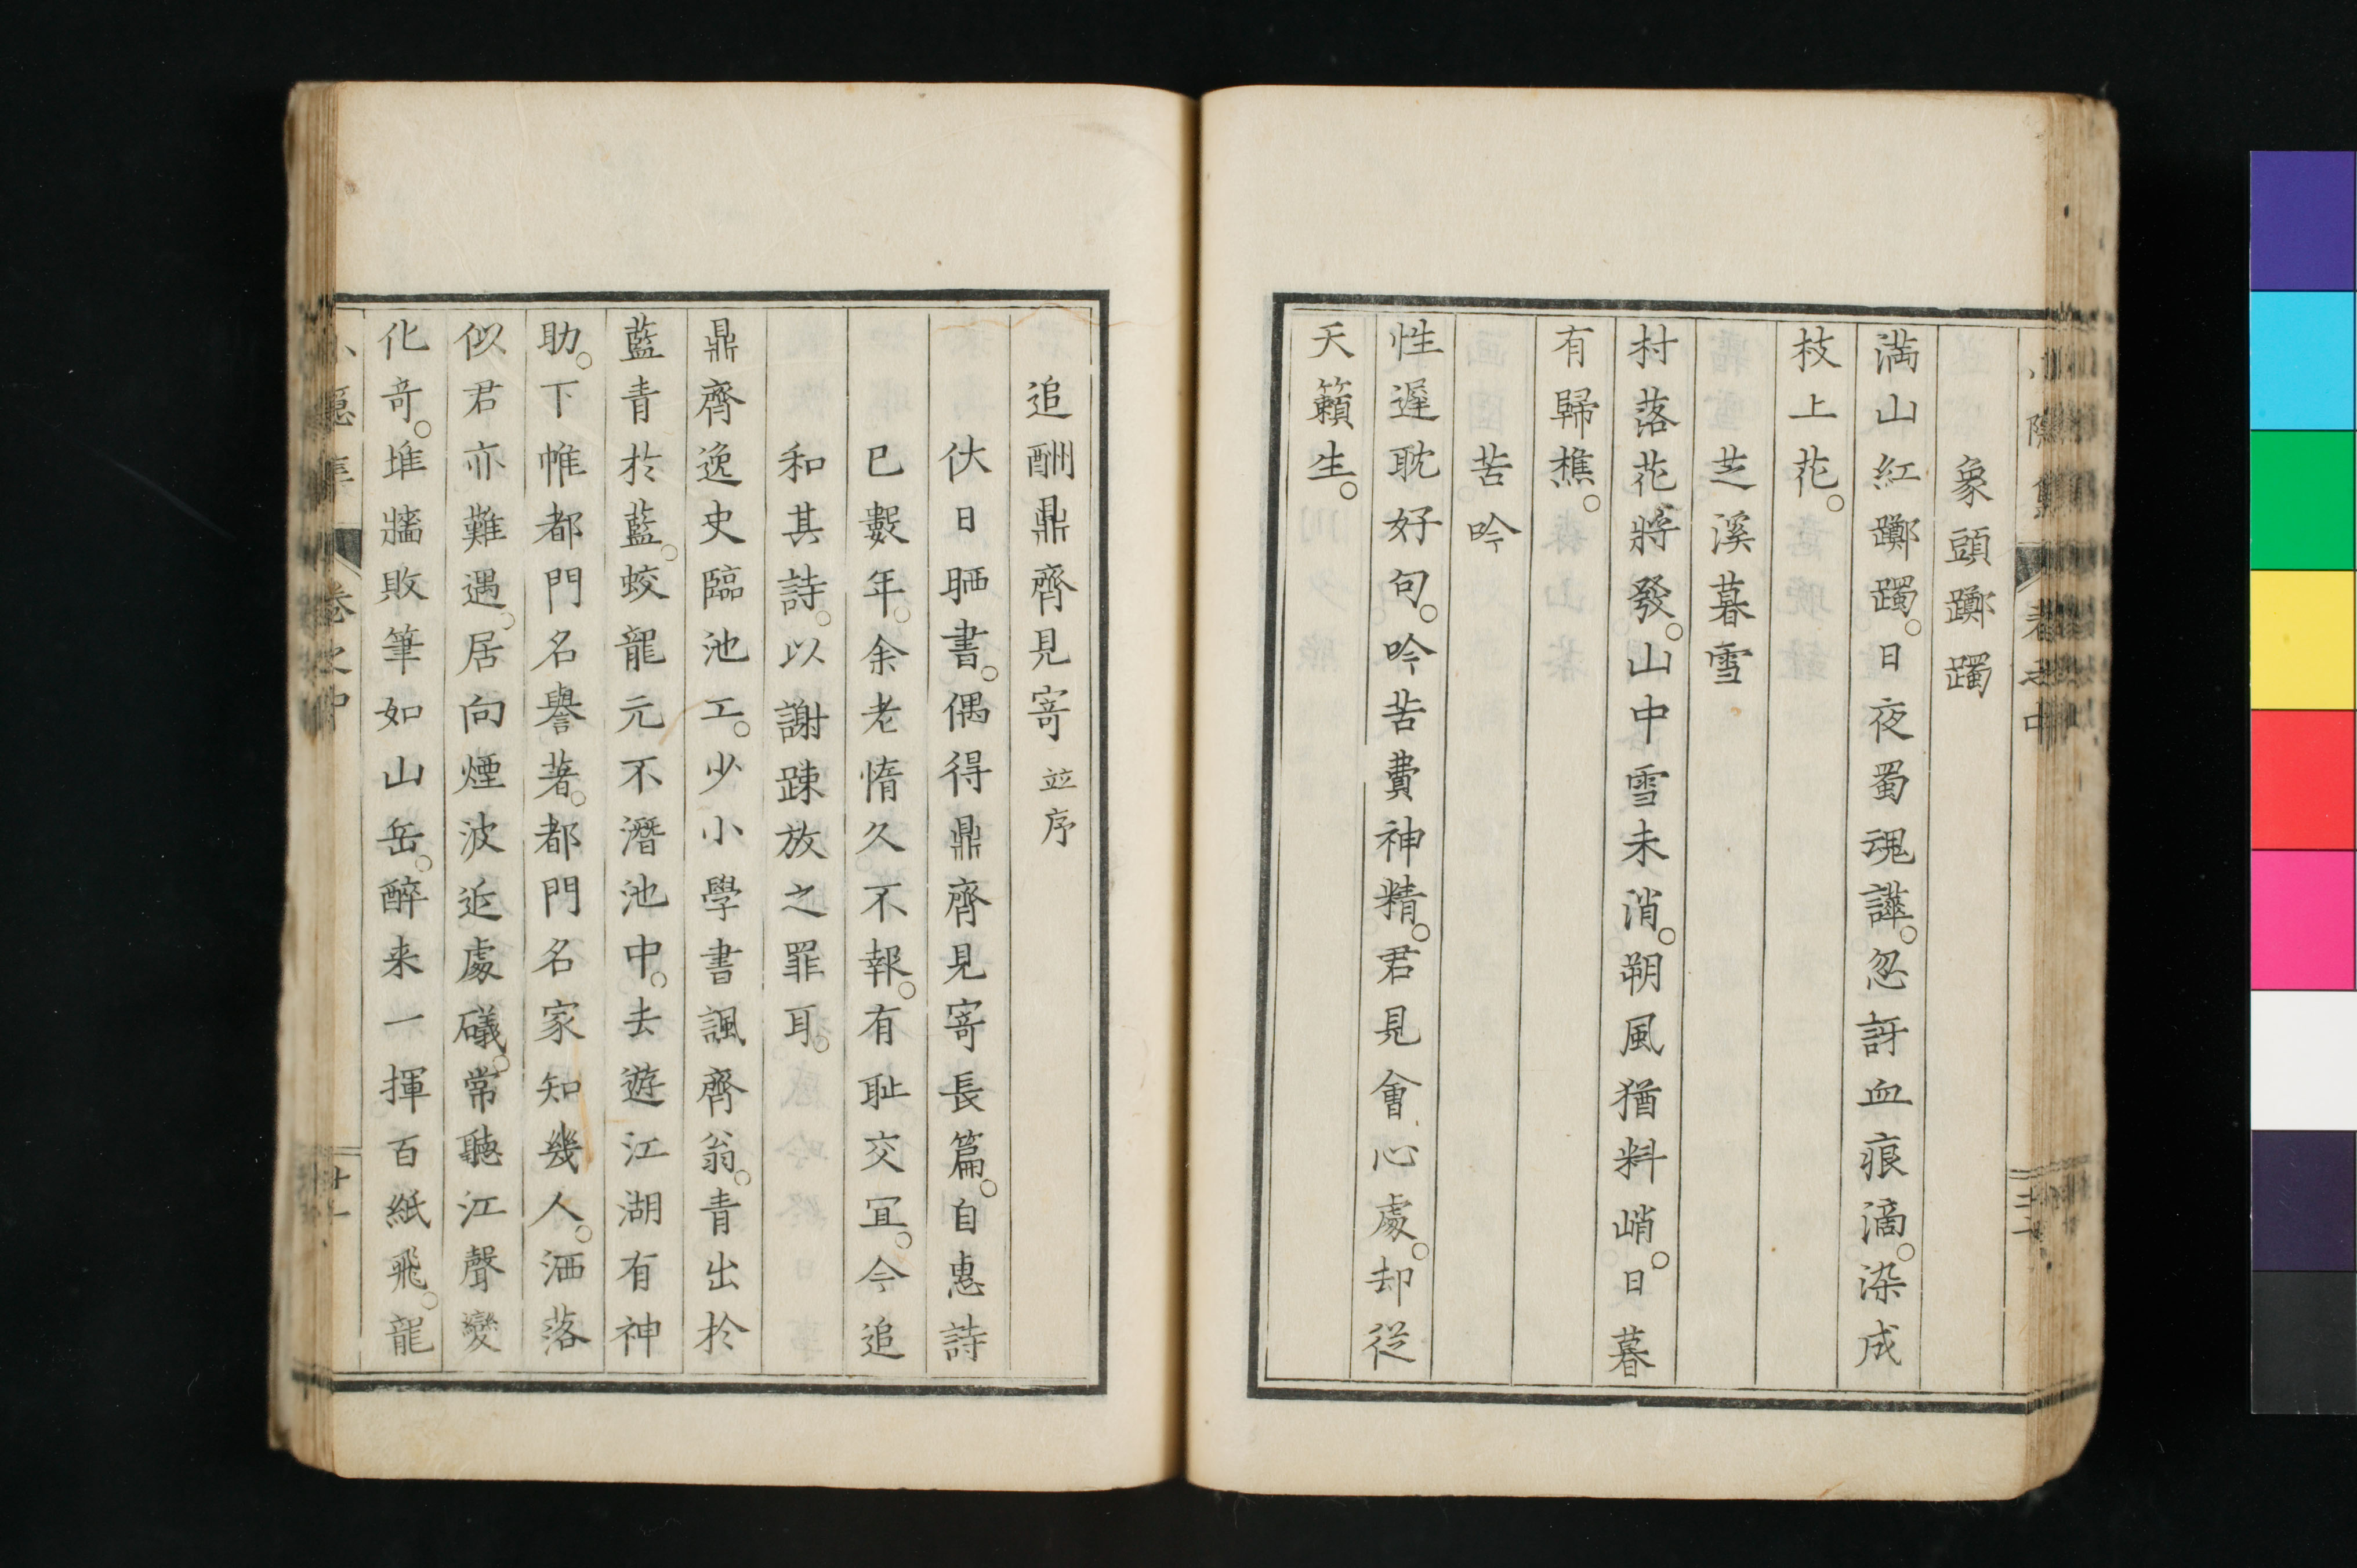 象頭躑躅
満山紅躑躅。日夜蜀魂譁。忽訝血痕滴。染成
枝上花。
芝溪暮雪
村落花將發。山中雪未消。朔風猶料峭。日暮
有歸樵。
苦吟
性遲耽好句。吟苦費神精。君見會心處。却從
天籟生。
追酬鼎齊見寄 並序
伏日晒書。偶得鼎齊見寄長篇。自惠詩
已數年。余老惰久不報。有耻交冝。今追
和其詩。以謝踈放之罪耳。
鼎齊逸史臨池工。少小學書諷齊翁。青出於
藍青於藍。蛟龍元不潛池中。去遊江湖有神
助。下帷都門名譽著。都門名家知幾人。洒落
似君亦難遇。居向煙波近處礒。常聽江聲變
化竒。堆牆敗筆如山岳。醉来一揮百紙飛。龍
卷之中